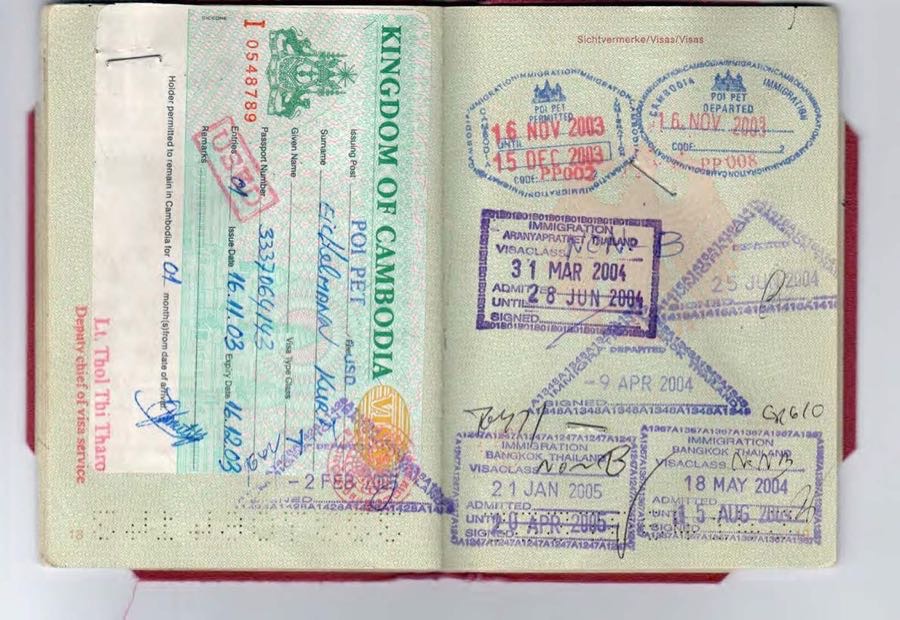 KINGDOM OF CAMBODIA
I 0548789
Issuing Post POI PET
Surname Eichelmann Kurt
Given Name
Visa Type Class
Passport Number
Entries 01 Issue Date 16.11.03 Expiry Date 16.12.03
Remarks
USED
Holder permitted to remain in Cambodia for 01 month(s) from date of arrival
Lt. Thol Thi Tharo
Deputy chief of visa service
18
- 2 FEB
SIGNED
Sichtvermerke/Visas/Visas
IMMIGRATION
POI PET
PERMITTED
16 NOV 2003
UNTIL
15 DEC 2003
CODE: PP002
CAMBODIA IMMIGRATION
POI PET
DEPARTED
16 NOV 2003
CODE: 2
PP 008
IMMIGRATION
ARANYAPRATHET THAILAND
VISACLASS NON B
31 MAR 2004
ADMITTED
UNTIL 28 JUN 2004
SIGNED
DEPARTED
25 2004
SIGNED
DEPARTED
- 9 APR 2004
SIGNED
IMMIGRATION
BANGKOK, THAILAND
VISACLASS Non B
21 JAN 2005
ADMITTED
UNTIL 20 APR 2005
SIGNED
IMMIGRATION
BANGKOK, THAILAND
VISACLASS
18 MAY 2004
ADMITTED
UNTIL AUG
SIGNED